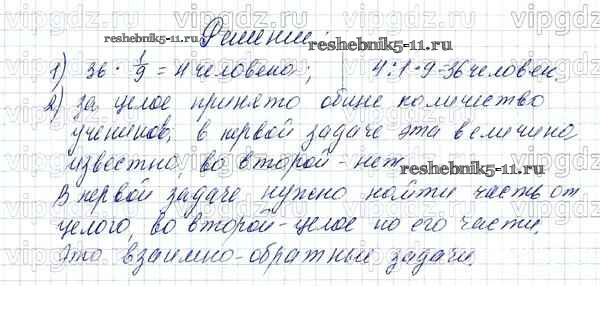 Решение:
1) 36 · 1/9 = 4 человека; 4:1·9=36 человек.
2) за целое принято общее количество
учеников, в первой задаче эта величина
известна, во второй - нет.
В первой задаче нужно найти часть от
целого, во второй - целое по его части.
Это взаимно-обратные задачи.
reshebnik5-11.ru
reshebnik5-11.ru
reshebnik5-11.ru
vipgdz